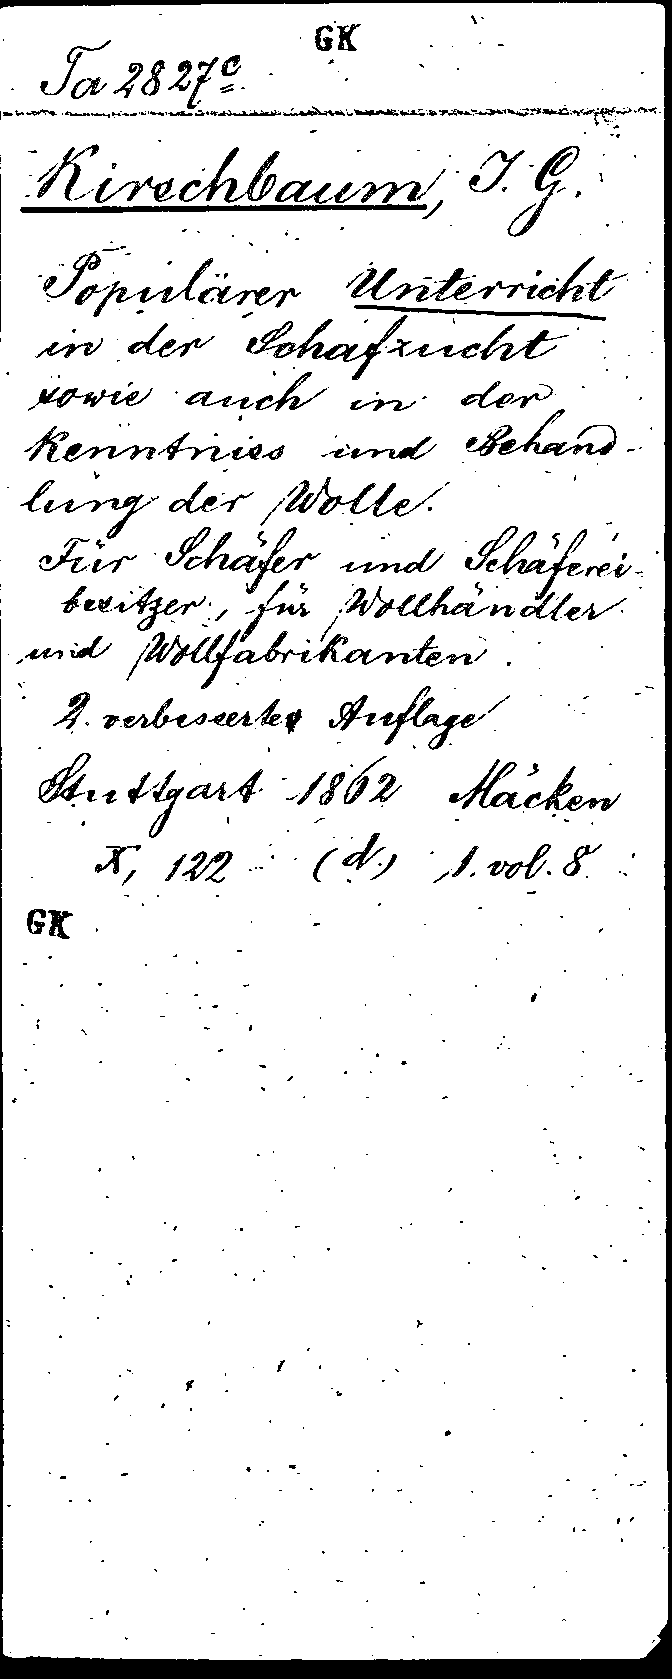 GK
Ta 2827c
Kirschbaum, J. G.
Populärer Unterricht
in der Schafzucht
sowie auch in der
Kenntniss und Behand-
lung der Wolle.
Für Schäfer und Schäferei-
besitzer, für Wollhändler
und Wollfabrikanten.
2. verbesserte Auflage
Stuttgart 1862 Mäcken
X, 122 (d.) 1. vol. 8
GK